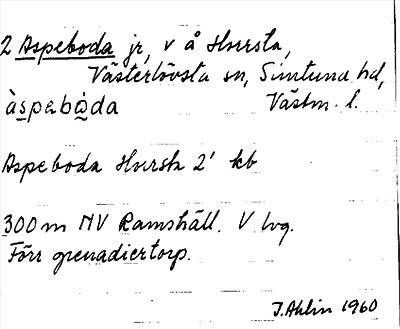 2 Aspeboda jr, v å Hvrsta,
Västerlövsta sn, Simtuna hd,
àspebòda Västm. l.
Aspeboda Hvrsta 2' kb
300 m NV Ramshäll. V lvg.
Förr grenadiertorp.
J. Ahlin 1960